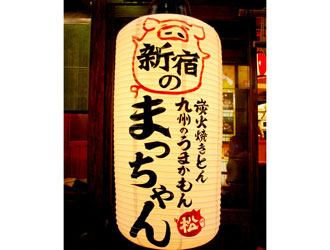 新宿の
まっちゃん
炭火焼きとん
九州のうまかもん
松